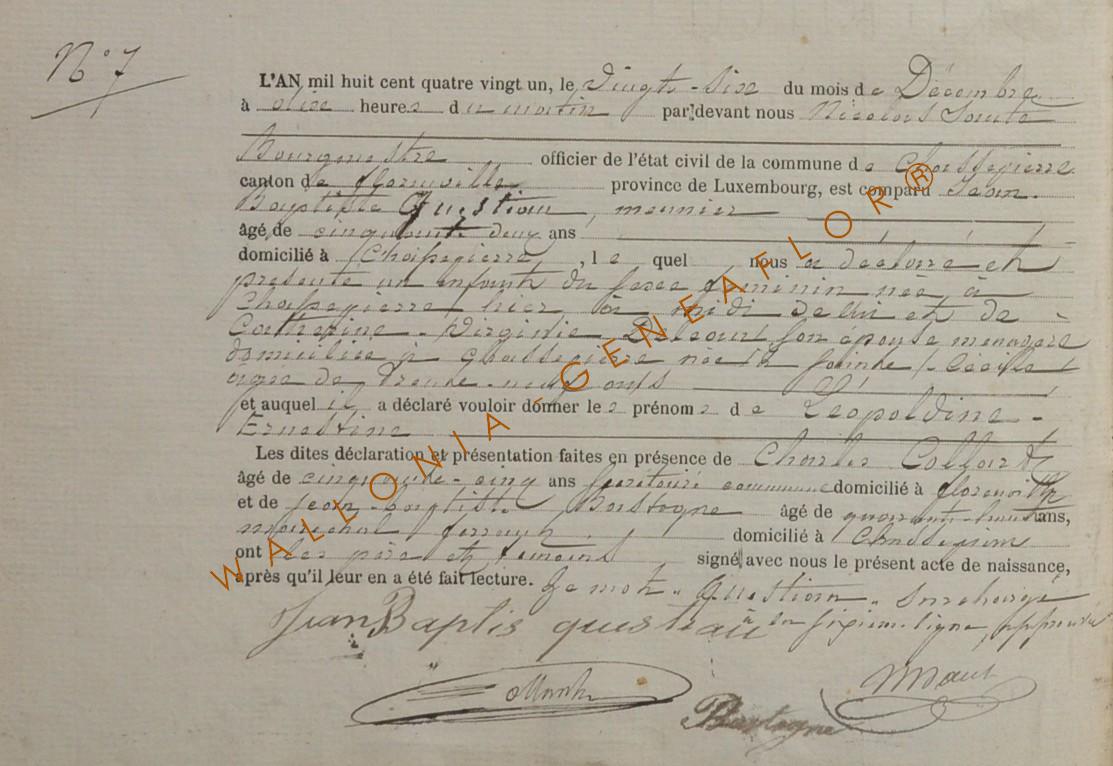 N° 7
L'AN mil huit cent quatre vingt un, le vingt-six du mois de Decembre
à dix heures du matin par devant nous Nicolas
Bourgmestre officier de l'état civil de la commune de Chassepierre
canton de florenville province de Luxembourg, est comparu Jean
Baptiste Questiau, meunier
âgé de cinquante deux ans
domicilié à Chassepierre, lequel nous a déclaré et
présenté un enfant du sexe feminin née à
Chassepierre hier à midi de lui et de
Catherine-Virginie son épouse menagere
domiciliée à Chassepierre née à Sainte-Cécile
agée de trente-neuf ans
et auquel il a déclaré vouloir donner les prénoms de Léopoldine-
Ernestine
Les dites déclaration et présentation faites en présence de Charles Collard
âgé de cinquante-cinq ans secrétaire communal domicilié à florenville
et de jean-baptiste Bastogne âgé de quarante-huit ans,
maréchal ferrant domicilié à Chassepierre
ont les père et témoins signé avec nous le présent acte de naissance,
après qu'il leur en a été fait lecture. Le mot "Questiau" surchargé
à la sixième ligne, approuvé
Jean Baptis questiau
Bastogne
WALLONIA-GENEAFLOR®